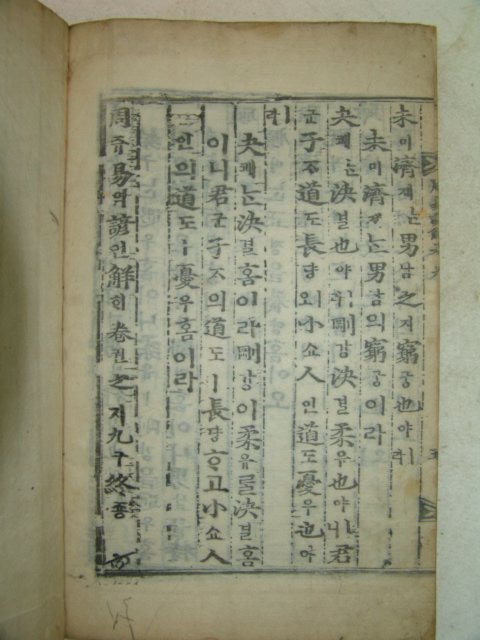 未미濟졔는男남之지窮궁也야ㅣ라
未미濟졔는男남의窮궁이라
夬쾌는決결也야ㅣ라剛강決결柔유也야ㅣ니君
군子ᄌᆞ道도長댱이오小쇼人인道도憂우也야
ㅣ라
夬쾌는決결홈이라剛강이柔유를決결홈
이니君군子ᄌᆞ의道도ㅣ長댱ᄒᆞ고小쇼人
인의道도ㅣ憂우홈이라
周쥬易역諺언解ᄒᆡ卷권之지九구終죵